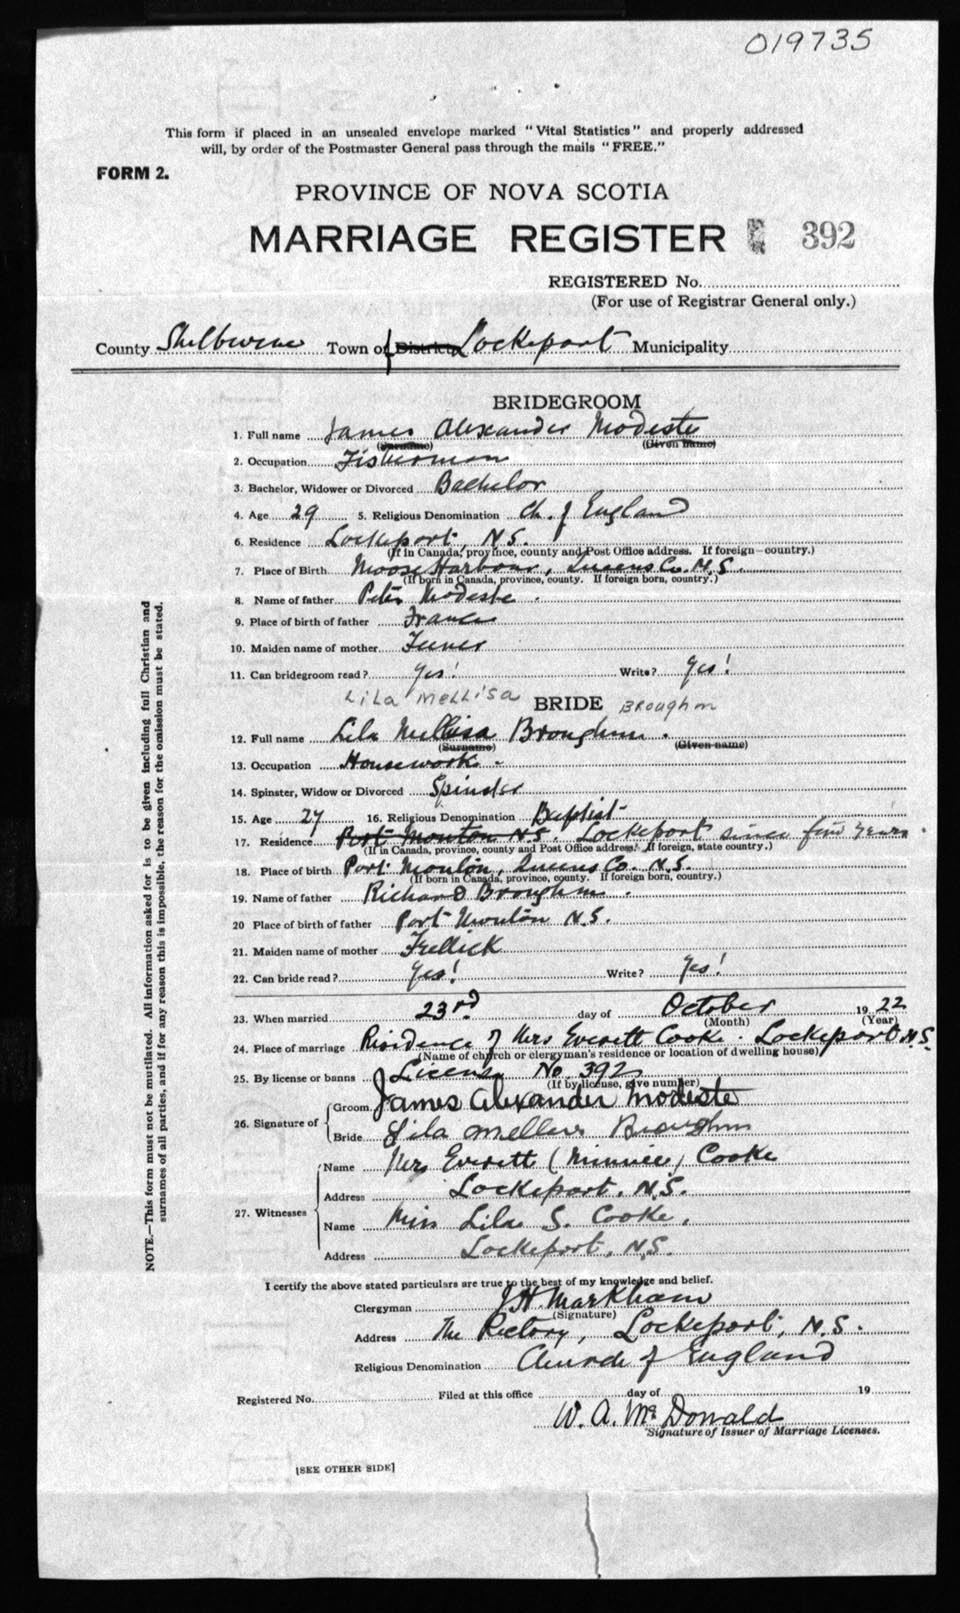 019735
This form if placed in an unsealed envelope marked "Vital Statistics" and properly addressed
will, by order of the Postmaster General pass through the mails "FREE."
FORM 2.
PROVINCE OF NOVA SCOTIA
MARRIAGE REGISTER 392
REGISTERED No.
(For use of Registrar General only.)
County Shelburne Town of District Lockeport Municipality
BRIDEGROOM
1. Full name James Alexander Modeste
(Surname) (Given name)
2. Occupation Fisherman
3. Bachelor, Widower or Divorced Bachelor
4. Age 29 5. Religious Denomination Ch. of England
6. Residence Lockeport, N.S.
(If in Canada, province, county and Post Office address. If foreign—country.)
7. Place of Birth Moose Harbour, Queens Co. N.S.
(If born in Canada, province, county. If foreign born, country.)
8. Name of father Peter Modeste.
9. Place of birth of father France
10. Maiden name of mother
11. Can bridegroom read? Yes! Write? Yes!
Lila Mellisa BRIDE Broughm
12. Full name Lila Mellisa Broughm.
(Surname) (Given name)
13. Occupation Housework.
14. Spinster, Widow or Divorced Spinster
15. Age 27 16. Religious Denomination Baptist
17. Residence Port Mouton N.S. Lockeport since five years.
(If in Canada, province, county and Post Office address. If foreign, state country.)
18. Place of birth Port Mouton, Queens Co. N.S.
(If born in Canada, province, county. If foreign born, country.)
19. Name of father Richard Broughm.
20 Place of birth of father Port Mouton N.S.
21. Maiden name of mother Frellick
22. Can bride read? Yes! Write? Yes!
23. When married 23rd day of October 1922
(Month) (Year)
24. Place of marriage Residence of Mrs Everett Cooke. Lockeport N.S.
(Name of church or clergyman's residence or location of dwelling house)
25. By license or banns License No 392
(If by license, give number)
26. Signature of Groom James Alexander Modeste
Bride Lila Broughm
27. Witnesses Name Mrs Everett (Minnie) Cooke
Address Lockeport, N.S.
Name Miss Lila S. Cooke,
Address Lockeport, N.S.
I certify the above stated particulars are true to the best of my knowledge and belief.
Clergyman J H. Markham
(Signature)
Address The Rectory, Lockeport, N.S.
Religious Denomination Church of England
Registered No. Filed at this office day of 19
W. A. McDonald
Signature of Issuer of Marriage Licenses.
[SEE OTHER SIDE]
NOTE.—This form must not be mutilated. All information asked for is to be given including full Christian and
surnames of all parties, and if for any reason this is impossible, the reason for the omission must be stated.